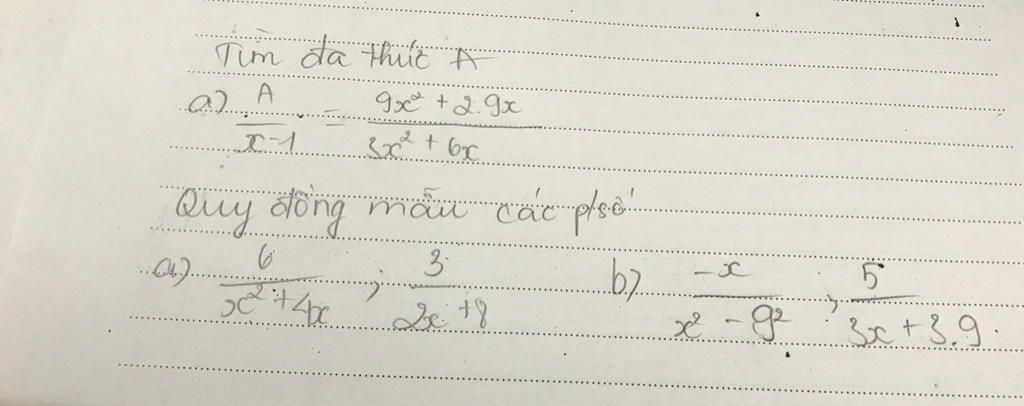 Tìm đa thức A
a) A/(x-1) = (9x² + 2.9x)/(3x² + 6x)
Quy đồng mẫu các p/số
a) 6/(x² + 4x) ; 3/(2x + 8) b) -x/(x² - 9²) ; 5/(3x + 3.9)